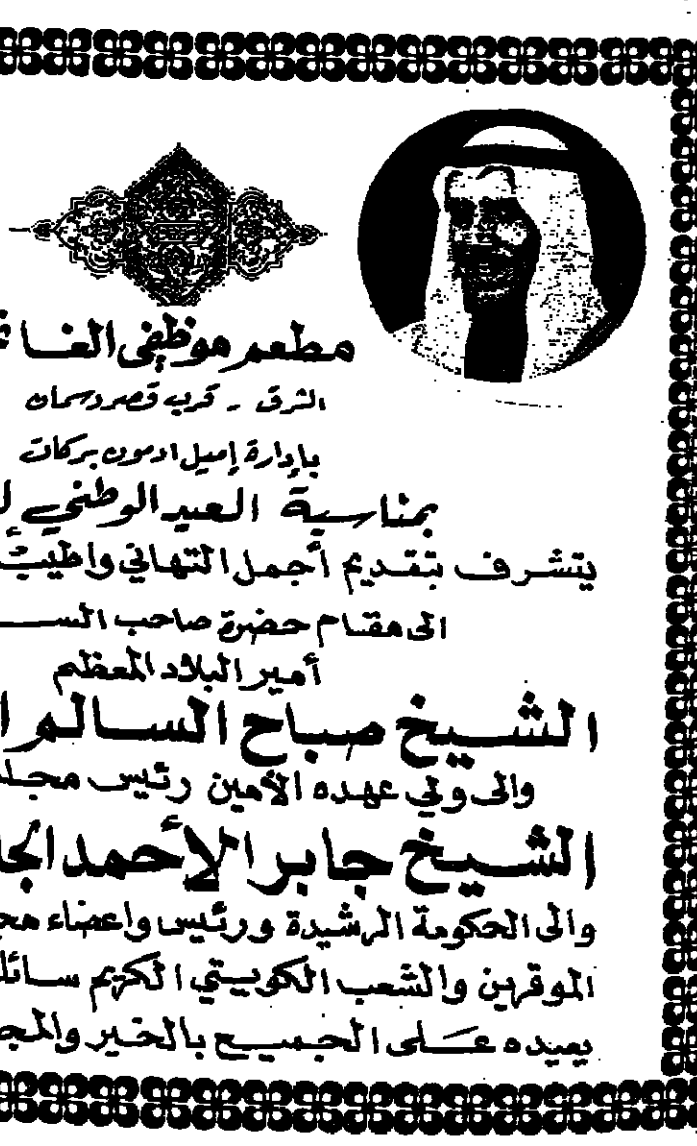 مطعم موظفي الغـا
الشرق - قرب قصر دسمان
بإدارة إميل ادمون بركات
بمناسبة العيد الوطني
يتشرف بتقديم أجمل التهاني واطيب
الى مقام حضرة صاحب الســ
أمير البلاد المعظم
الشيخ صباح السالم ا
والى ولي عهده الأمين رئيس مجلـ
الشيخ جابر الأحمد الجا
والى الحكومة الرشيدة ورئيس واعضاء مجـ
الموقرين والشعب الكويتي الكريم سائلـ
يعيده على الجميع بالخير والمجـ